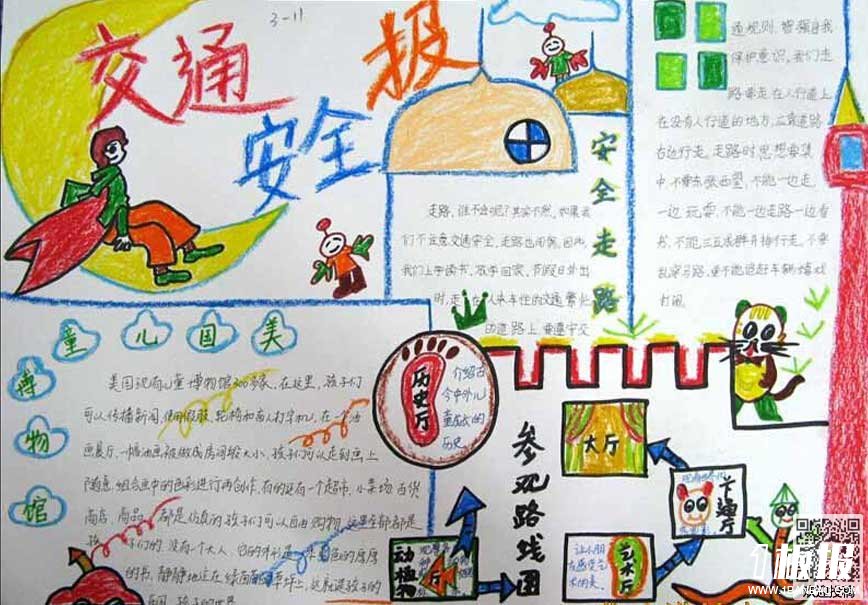 3-11
交通
安全
报
安全走路
走路，谁不会呢？其实不然，如果我
们不注意交通安全，走路也闯祸，因此，
我们上学读书、放学回家、节假日外出
时，走在人来车往的交通繁忙
的道路上，要遵守交
通规则、增强自我
保护意识。我们走
路要走在人行道上
在没有人行道的地方，应靠道路
右边行走。走路时思想要集
中，不要东张西望，不能一边走，
一边玩耍，不能一边走路一边看
书，不能三五成群并排行走，不要
乱穿马路，更不能追赶车辆嬉戏
打闹。
美国儿童
博物馆
美国现有儿童博物馆300多家。在这里，孩子们
可以传播新闻，使用假肢、轮椅和盲人打字机。在一个油
画展厅，一幅油画被做成房间般大小，孩子们可以走到画上
随意组合画中的色彩进行再创作。有的还有一个超市，小菜场、百货
商店，商品都是仿真的孩子们可以自由购物，这里全都都是
孩子们的，没有一个大人，它的外形是一本色的厚厚
的书，静静地立在绿茵茵草坪上，这就是孩子的
乐园，孩子的世界
历史厅
介绍古
今中外儿
童成长的
历史
参观路线图
大厅
卡通厅
艺术厅
让小朋
友感受艺
术的美。
动植物厅
板报